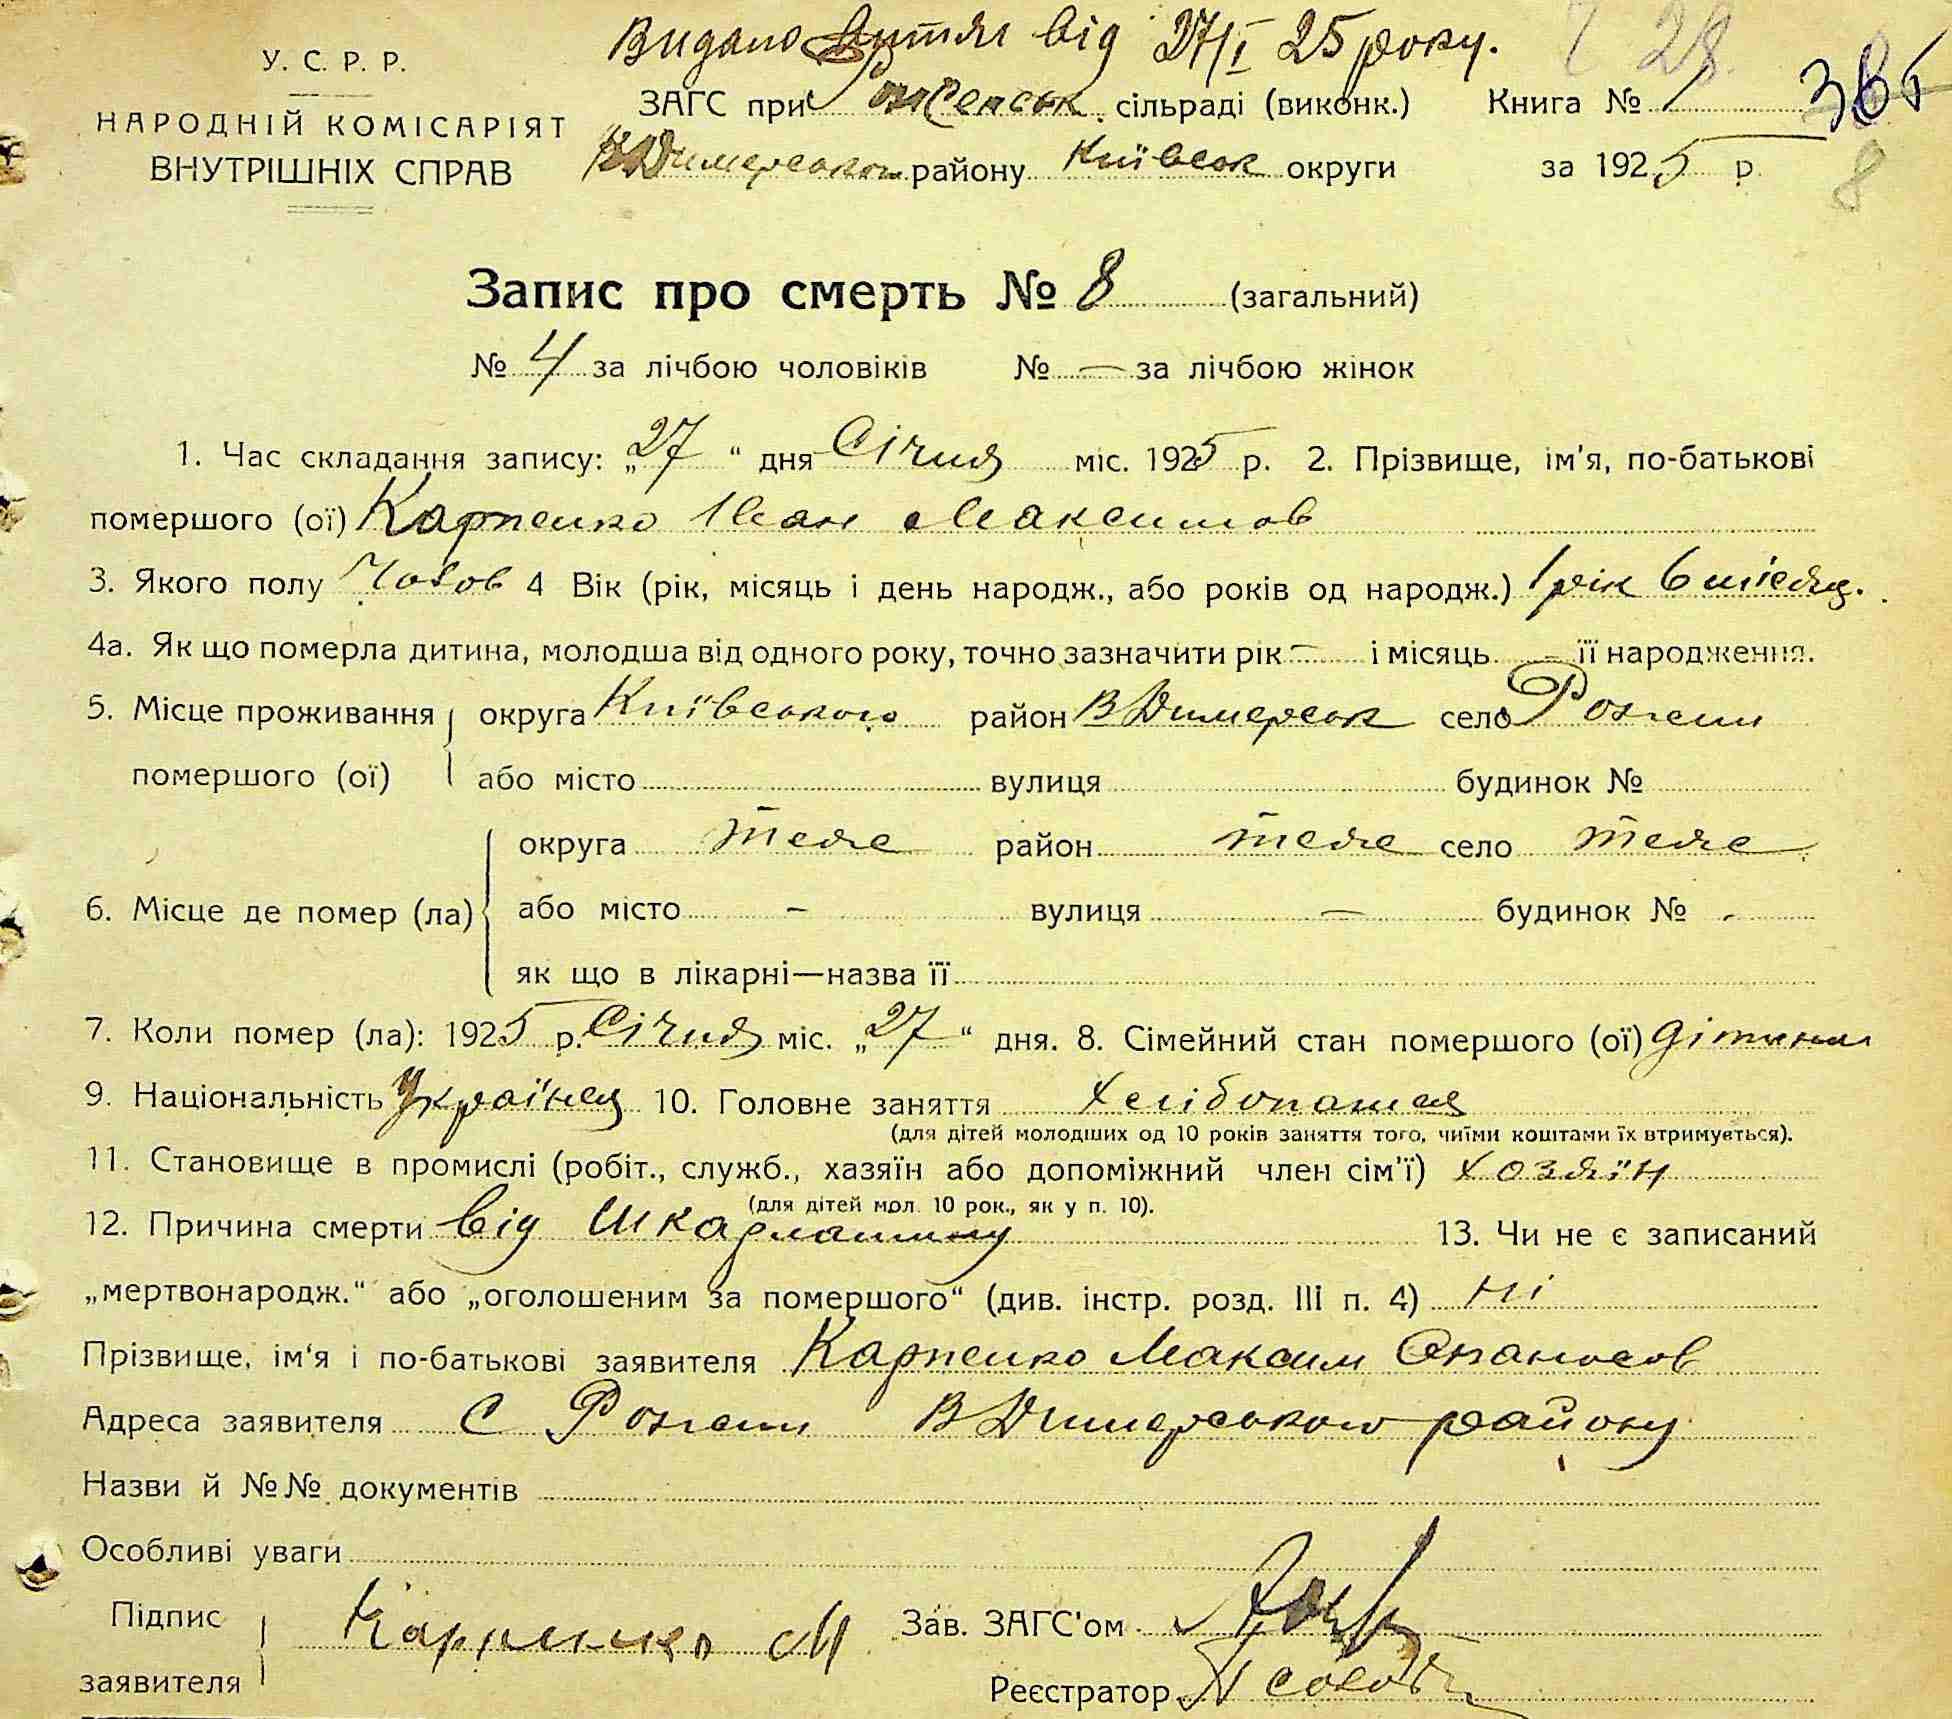 Видано Витяг від 27/I 25 року.
У. С. Р. Р.
НАРОДНІЙ КОМІСАРІЯТ
ВНУТРІШНІХ СПРАВ
ЗАГС при Рожевськ сільраді (виконк.) Книга № 1
В Димерського району Київськ округи за 1925 р. 8
Запис про смерть № 8 (загальний)
№ 4 за лічбою чоловіків № — за лічбою жінок
1. Час складання запису: „27“ дня Січня міс. 1925 р. 2. Прізвище, ім'я, по-батькові
помершого (ої) Карпенко Іван Максимов
3. Якого полу Чолов 4 Вік (рік, місяць і день народж., або років од народж.) 1 рік 6 місяц.
4а. Як що померла дитина, молодша від одного року, точно зазначити рік — і місяць - її народження.
5. Місце проживання округа Київського район В Димерськ село Рожени
помершого (ої) або місто вулиця будинок №
округа теже район теже село теже
6. Місце де помер (ла) або місто - вулиця — будинок № -
як що в лікарні—назва її
7. Коли помер (ла): 1925 р. Січня міс. „27“ дня. 8. Сімейний стан помершого (ої) дітина
9. Національність Українец 10. Головне заняття Хлібопашец
(для дітей молодших од 10 років заняття того, чиїми коштами їх втримується).
11. Становище в промислі (робіт., служб., хазяїн або допоміжний член сім'ї) хозяїн
(для дітей мол. 10 рок., як у п. 10).
12. Причина смерти від шкарлатини 13. Чи не є записаний
„мертвонародж.“ або „оголошеним за помершого“ (див. інстр. розд. III п. 4) ні
Прізвище, ім'я і по-батькові заявителя Карпенко Максим Опанасов
Адреса заявителя С Рожени В Димерського району
Назви й №№ документів
Особливі уваги
Підпис Карпенко М Зав. ЗАГС'ом
заявителя
Реєстратор